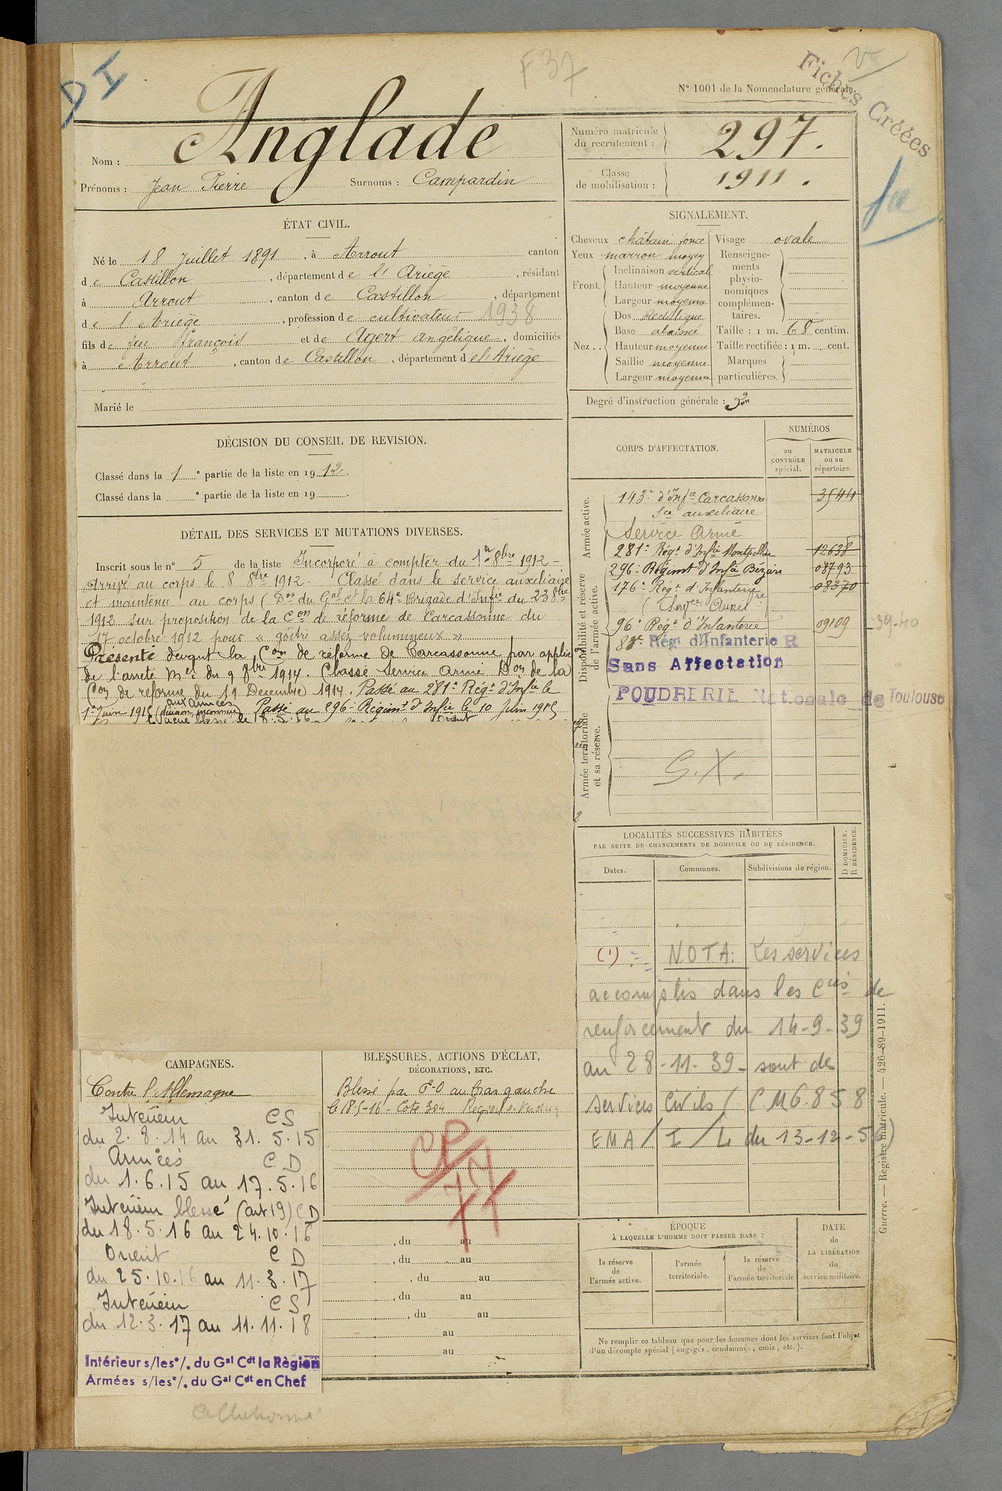 DI
F 37
N° 1001 de la Nomenclature générale.
Fiches Créées
Nom : Anglade
Prénoms : Jean Pierre Surnoms : Campardin
Numéro matricule du recrutement : 297.
Classe de mobilisation : 1911.
ÉTAT CIVIL.
Né le 18 Juillet 1891, à Arrout canton
de Castillon, département de l'Ariège, résidant
à Arrout, canton de Castillon, département
de l'Ariège, profession de cultivateur 1938
fils de feu françois et de Agert angélique, domiciliés
à Arrout, canton de Castillon, département de l'Ariège
Marié le
SIGNALEMENT.
Cheveux châtain foncé
Yeux marron moyen
Front. Inclinaison vertical
Hauteur moyenne
Largeur moyenne
Nez. Dos Rectiligne
Base abaissé
Hauteur moyenne
Saillie moyenne
Largeur moyenne
Visage ovale
Renseignements physionomiques complémentaires.
Taille : 1 m. 68 centim.
Taille rectifiée : 1 m. cent.
Marques particulières.
Degré d'instruction générale : 3
DÉCISION DU CONSEIL DE REVISION.
Classé dans la 1e partie de la liste en 1912.
Classé dans la e partie de la liste en 19
DÉTAIL DES SERVICES ET MUTATIONS DIVERSES.
Inscrit sous le n° 5 de la liste Incorporé à compter du 1er 8bre 1912 -
Arrivé au corps le 8 8bre 1912 - Classé dans le service auxiliaire
et maintenu au corps (Don du Gal Ct la 64e Brigade d'Inftie du 23 8bre
1912 sur proposition de la Con de réforme de Carcassonne du
17 octobre 1912 pour « goître assez volumineux »
Présenté devant la Con de réforme de Carcassonne par applic
de l'arrêté Mel du 9 9bre 1914. Classé Service Armé Don de la
Con de réforme du 11 Décembre 1914. Passé au 281e Régt d'Infie le
aux armées
1er Juin 1915 (division inconnue) Passé au 296e Régiment d'Infie le 10 Juin 1915
CORPS D'AFFECTATION.
NUMÉROS
au CONTRÔLE spécial.
MATRICULE ou au répertoire.
Armée active.
143e d'Infie Carcassonne 3544
Sce auxiliaire
Service Armé
Disponibilité et réserve de l'armée active.
281e Régt d'Infie Montpellier 12638
296e Régiment d'Infie Béziers 08793
176e Régt d'Infanterie 08370
96e Régt d'Infanterie 09109 39-40
Rég d'Infanterie R
Sans Affectation
POUDRERIE Nationale de Toulouse
Armée territoriale et sa réserve.
S.X.
LOCALITÉS SUCCESSIVES HABITÉES
PAR SUITE DE CHANGEMENTS DE DOMICILE OU DE RÉSIDENCE.
Dates. Communes. Subdivisions de région. D DOMICILE. R RÉSIDENCE.
(1) = NOTA: Les services
accomplis dans les Cies de
renforcement du 14-9-39
au 28-11-39 - sont de
services Civils (CM 6.858
EMA/I/L du 13-12-5
CAMPAGNES.
Contre l'Allemagne
Intérieur CS
du 2.8.14 au 31.5.15
Armées CD
du 1.6.15 au 17.5.16
Intérieur blessé (art 19) CD
du 18.5.16 au 24.10.16
Orient CD
du 25.10.16 au 11.3.17
Intérieur CS
du 12.3.17 au 11.11.18
Intérieur s/les °/. du Gal Cdt la Région
Armées s/les °/. du Gal Cdt en Chef
BLESSURES, ACTIONS D'ÉCLAT,
DÉCORATIONS, ETC.
Blessé par é-O au bras gauche
le 18-5-16 - Cote 304 Région de Verdun
CP
, du au
, du au
, du au
, du au
, du au
au
au
ÉPOQUE
À LAQUELLE L'HOMME DOIT PASSER DANS :
la réserve de l'armée active.
l'armée territoriale.
la réserve de l'armée territoriale
DATE de LA LIBÉRATION du service militaire.
Ne remplir ce tableau que pour les hommes dont les services font l'objet
d'un décompte spécial (engagés, condamnés, omis, etc.).
Guerre. — Registre matricule. — 426-89-1911.